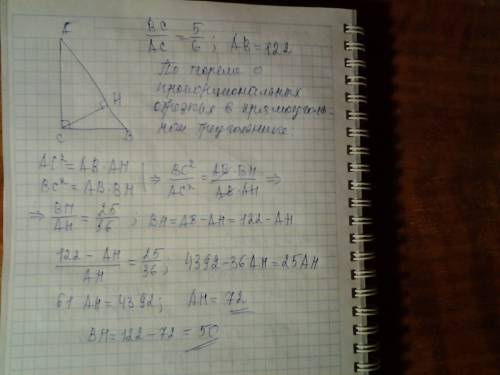 A
H
C
B
BC/AC = 5/6 ; AB = 122
По теореме о
пропорциональных
отрезках в прямоуголь-
ном треугольнике:
AC² = AB · AH
BC² = AB · BH
⇒ BC²/AC² = AB · BH/AB · AH ⇒
⇒ BH/AH = 25/36 ; BH = AB − AH = 122 − AH
122 − AH/AH = 25/36 ; 4392 − 36AH = 25AH
61 AH = 4392 ; AH = 72
BH = 122 − 72 = 50